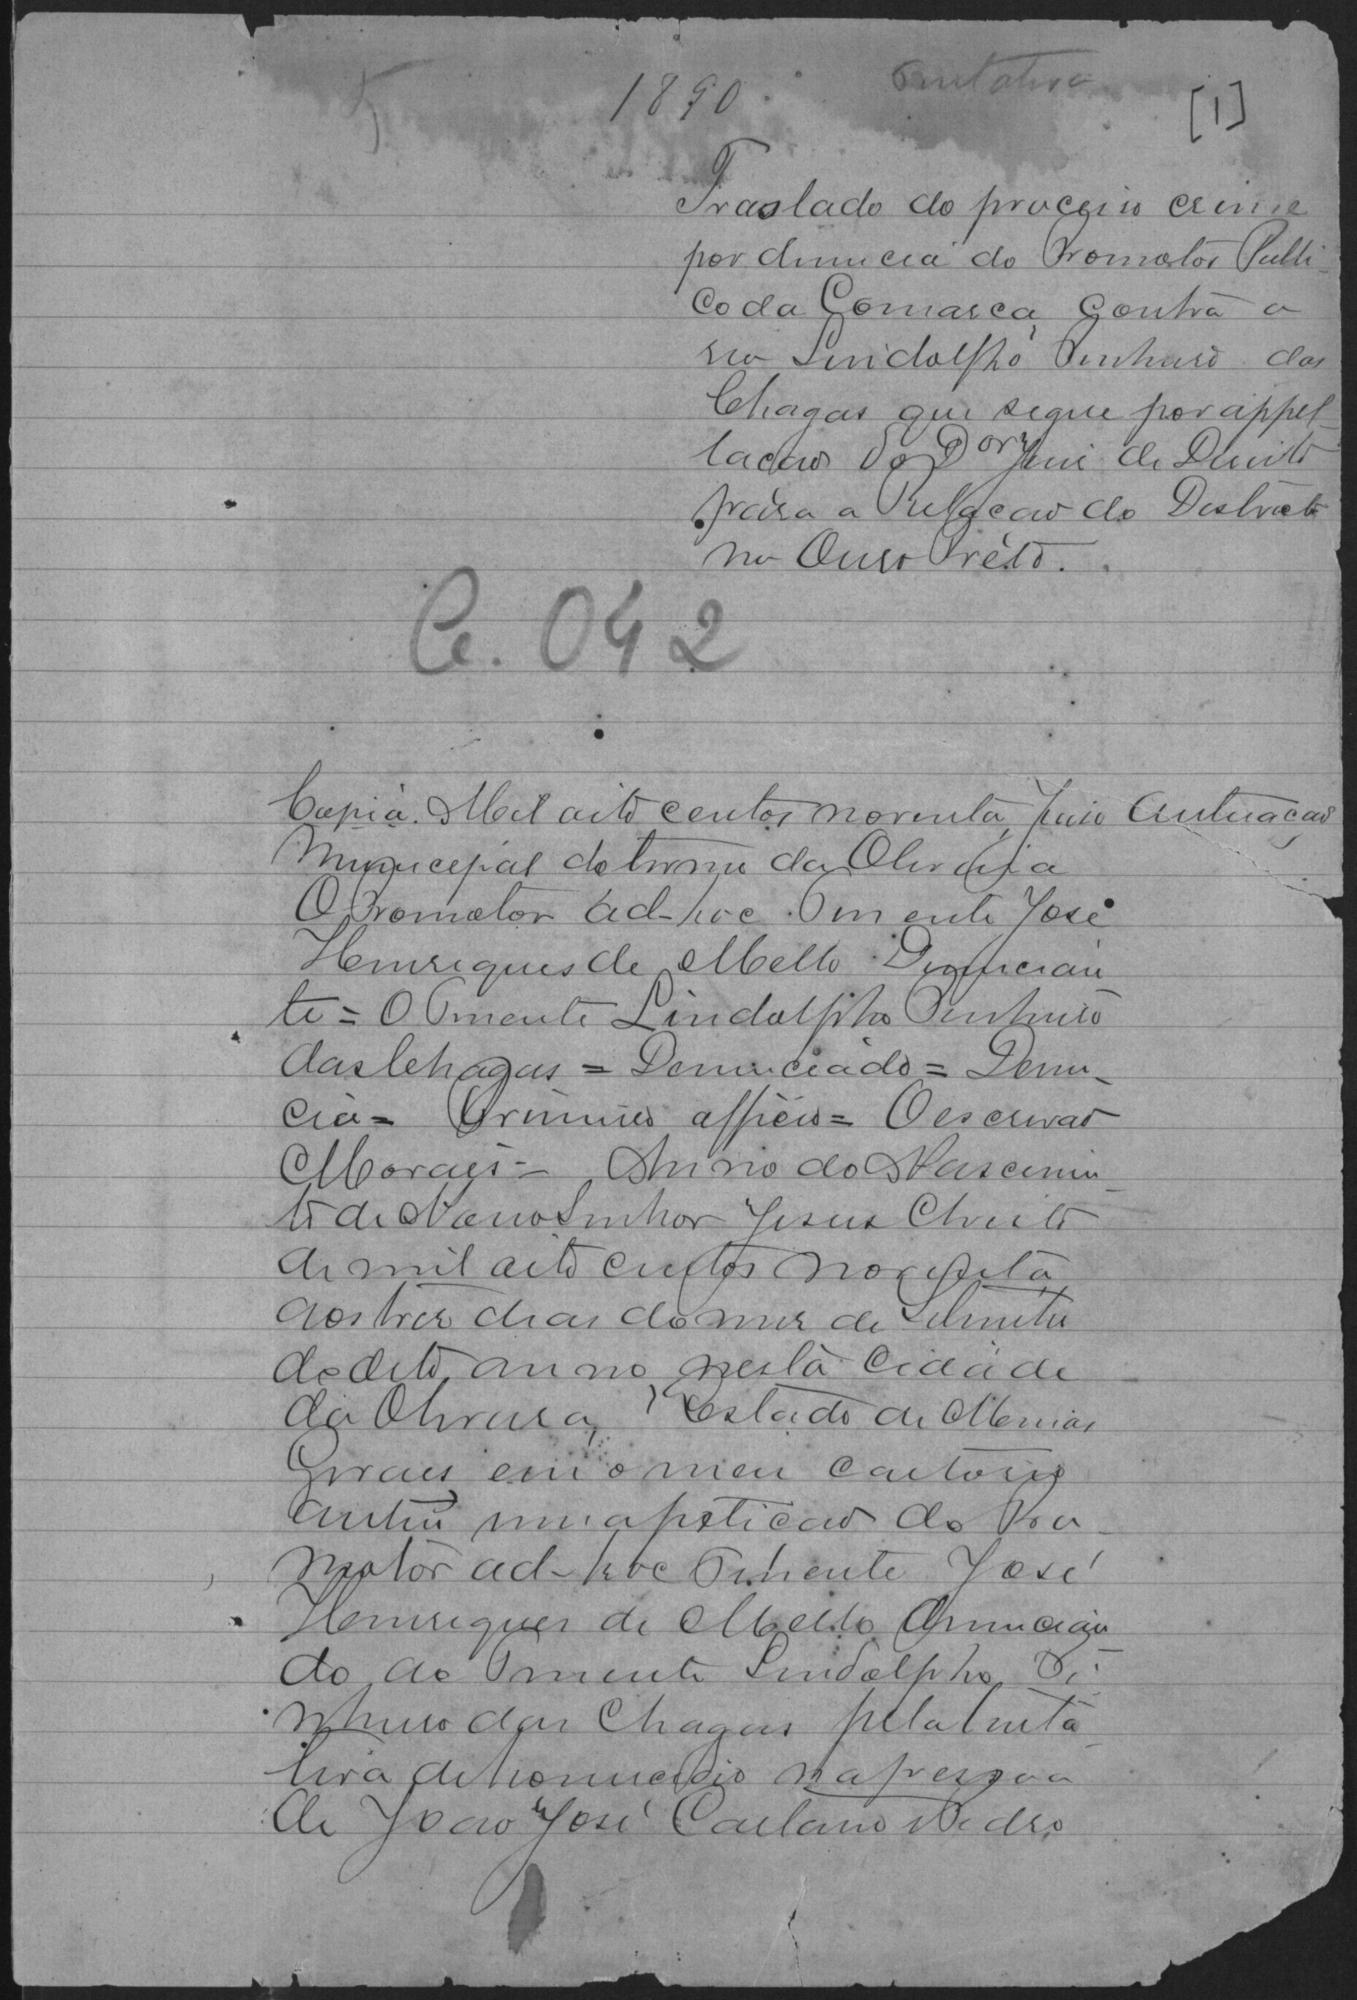 1890
tentativa
[1]
Traslado do processo crime
por denuncia do Promotor Publi-
co da Comarca, contra o
reo Lindolpho Pinheiro das
Chagas que segue por appel-
lacao do Dor Juis de Direito
para a Relacao do Districto
no Ouro Preto.
Cr. 042
Copia. Mil oito centos noventa, Juiso Autuacao
Municipal do termo da Oliveira
O Promotor ad-hoc Tenente José
Henriques de Mello Denuncian
te = O Tenente Lindolpho Pinheiro
das Chagas = Denunciado = Denun-
cia = Primeiro officio = O escrivao
Moraes = Anno do Nascimen-
to de Nosso Senhor Jesus Christo
de mil oito centos noventa,
aos tres dias do mes de Setembro
do dito anno, nesta Cidade
da Oliveira, Estado de Minas
Geraes em o meu cartorio
autuei uma peticao do Pro-
motor ad-hoc Tenente José
Henriques de Mello denuncian
do do Tenente Lindolpho Pi-
nheiro das Chagas pela tenta-
tiva de homicidio na pessoa
de Joao José Caetano Pedro